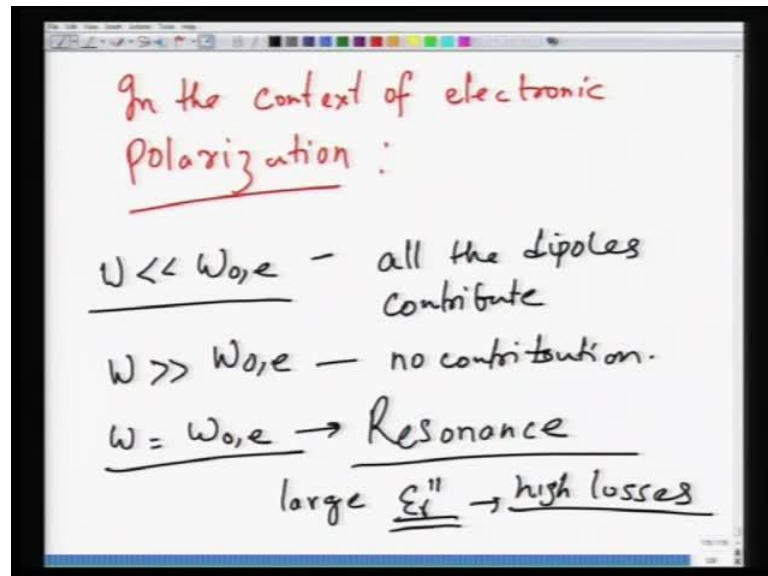 In the context of electronic
Polarization :
ω << ω₀,e - all the dipoles
contribute
ω >> ω₀,e — no contribution.
ω = ω₀,e → Resonance
large εr" → high losses